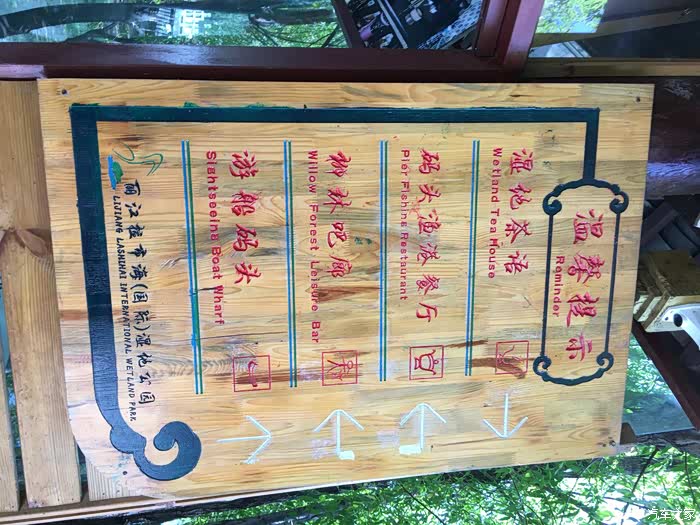 温馨提示
Reminder
湿地茶语
Wetland Tea House
码头渔港餐厅
Pier Fishing Restaurant
柳林吧廊
Willow Forest Leisure Bar
游船码头
Sightseeing Boat Wharf
丽江拉市海(国际)湿地公园
LIJIANG LASHIHAI INTERNATIONAL WETLAND PARK
汽车之家